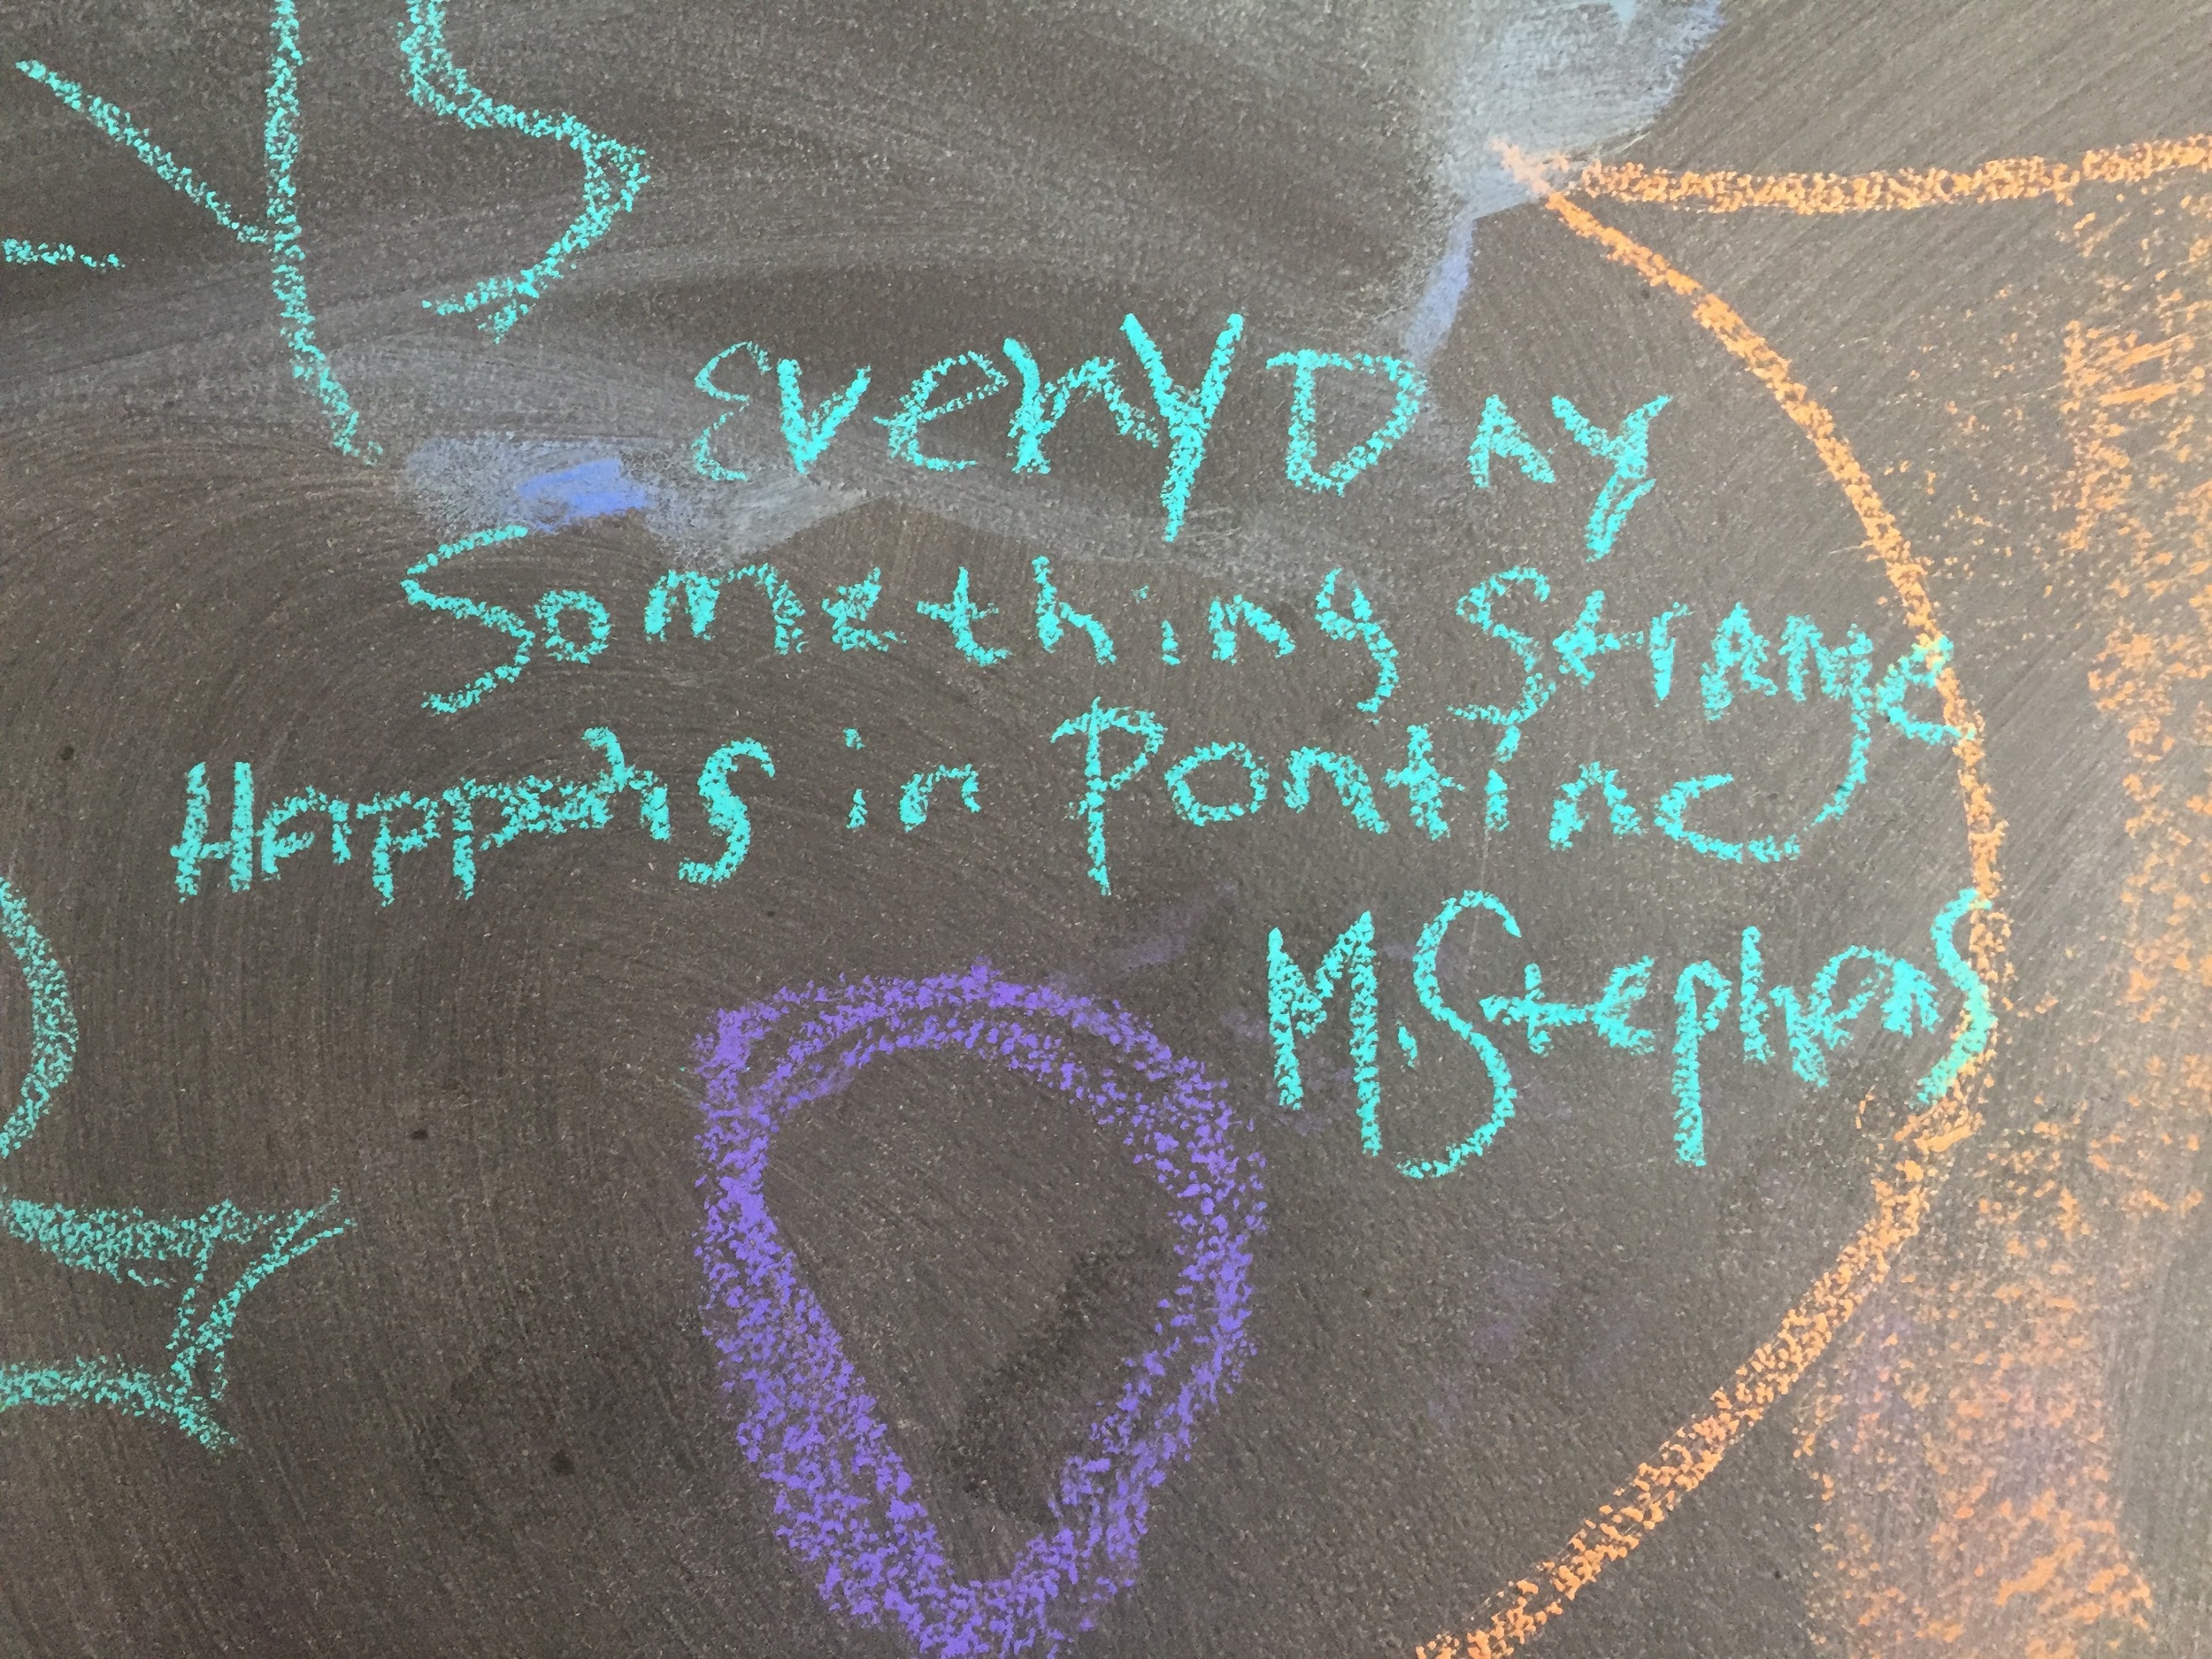 EveryDAY
Something Strange
HAppens in Pontiac
M. Stephens